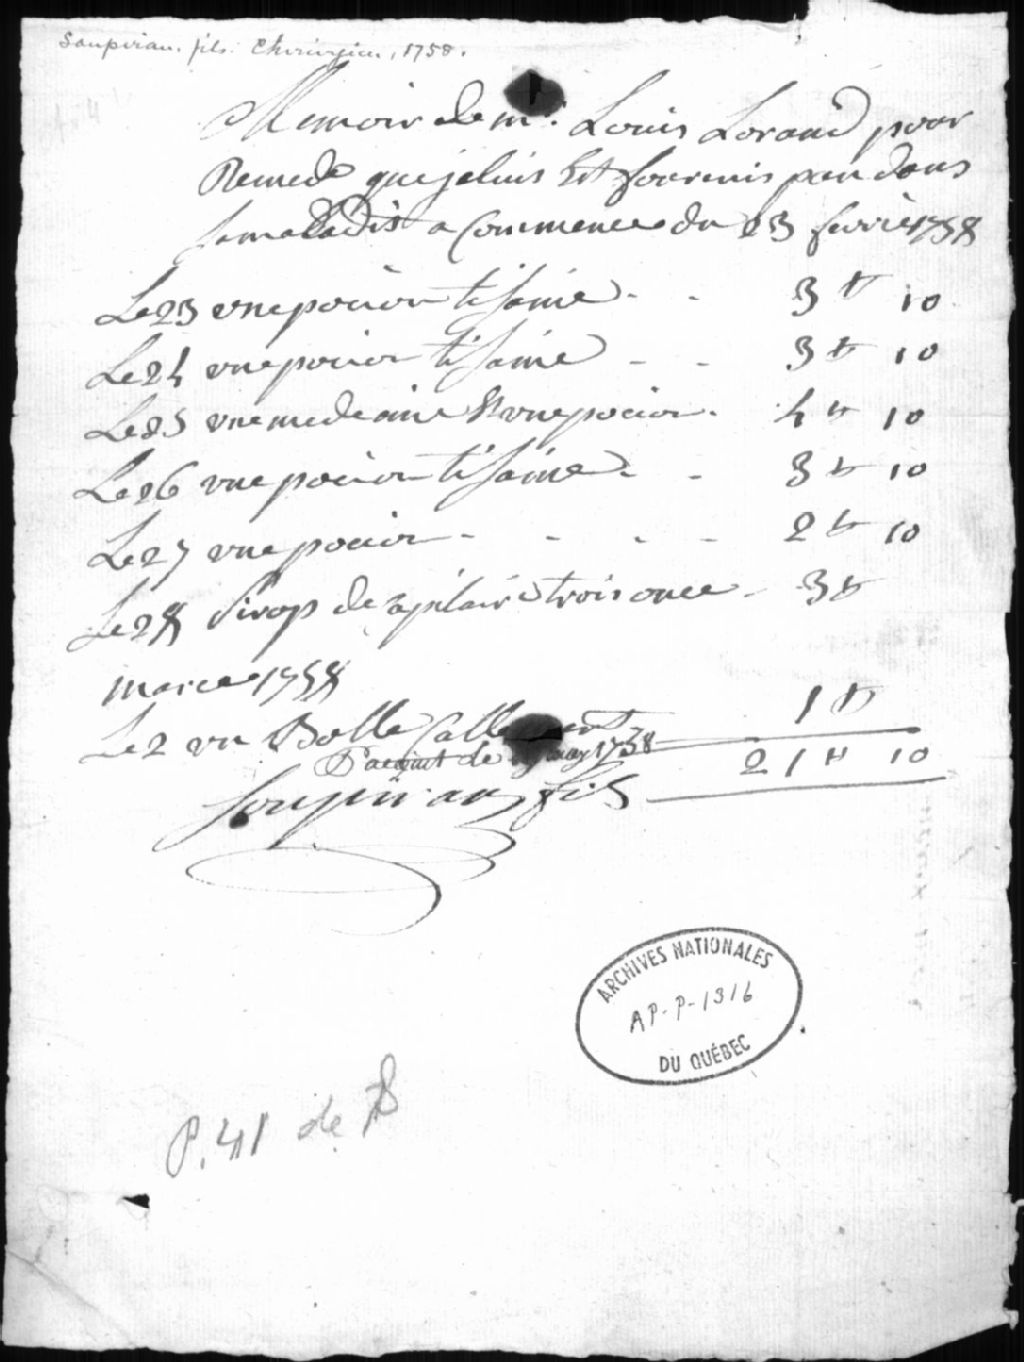 Soupiran fils Chirurgien, 1758.
Memoir de mr. Louis Loraud pour
Remede que je luis Est fournis pandans
sa maladis a Commence du 23 fevrie 1758
Le 23 une pocion tisaine - - 3 tt 10
Le 24 une pocion tisaine - - 3 tt 10
Le 25 une medecine Et une pocion. 4 tt 10
Le 26 une pocion tisaine - - 3 tt 10
Le 27 une pocion - - - - 2 tt 10
Le 28 Sirop de capilaire trois once - 3 tt
marce 1758
Le 2 un Bolle 1 tt
P acquit de may 1758 21 tt 10
Soupiran fils
ARCHIVES NATIONALES
AP-P-1316
DU QUÉBEC
P. 41 de